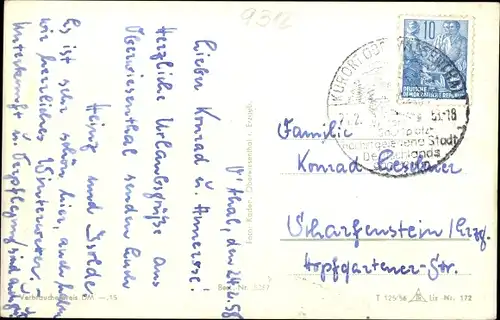 9312
O'thal, den 24.2.58
Lieber Konrad u. Annerose!
Herzliche Urlaubsgrüße aus
Oberwiesenthal senden Euch
Heinz und Isolde
Es ist sehr schön hier, auch haben
wir herrliches Winterwetter. –
Unterkunft u. Verpflegung sind
Foto: Kaden, Oberwiesenthal i. Erzgeb.
Verbraucherpreis DM –.15
Best.-Nr.
10
DEUTSCHE
DEMOKRATISCHE REPUBLIK
KURORT OBERWIESENTHAL
-18
Sportplatz
höchstgelegene Stadt
Deutschlands
Familie
Konrad
Scharfenstein/Erzg.
Hopfgartener-Str.
T 125/56 Liz. Nr. 172